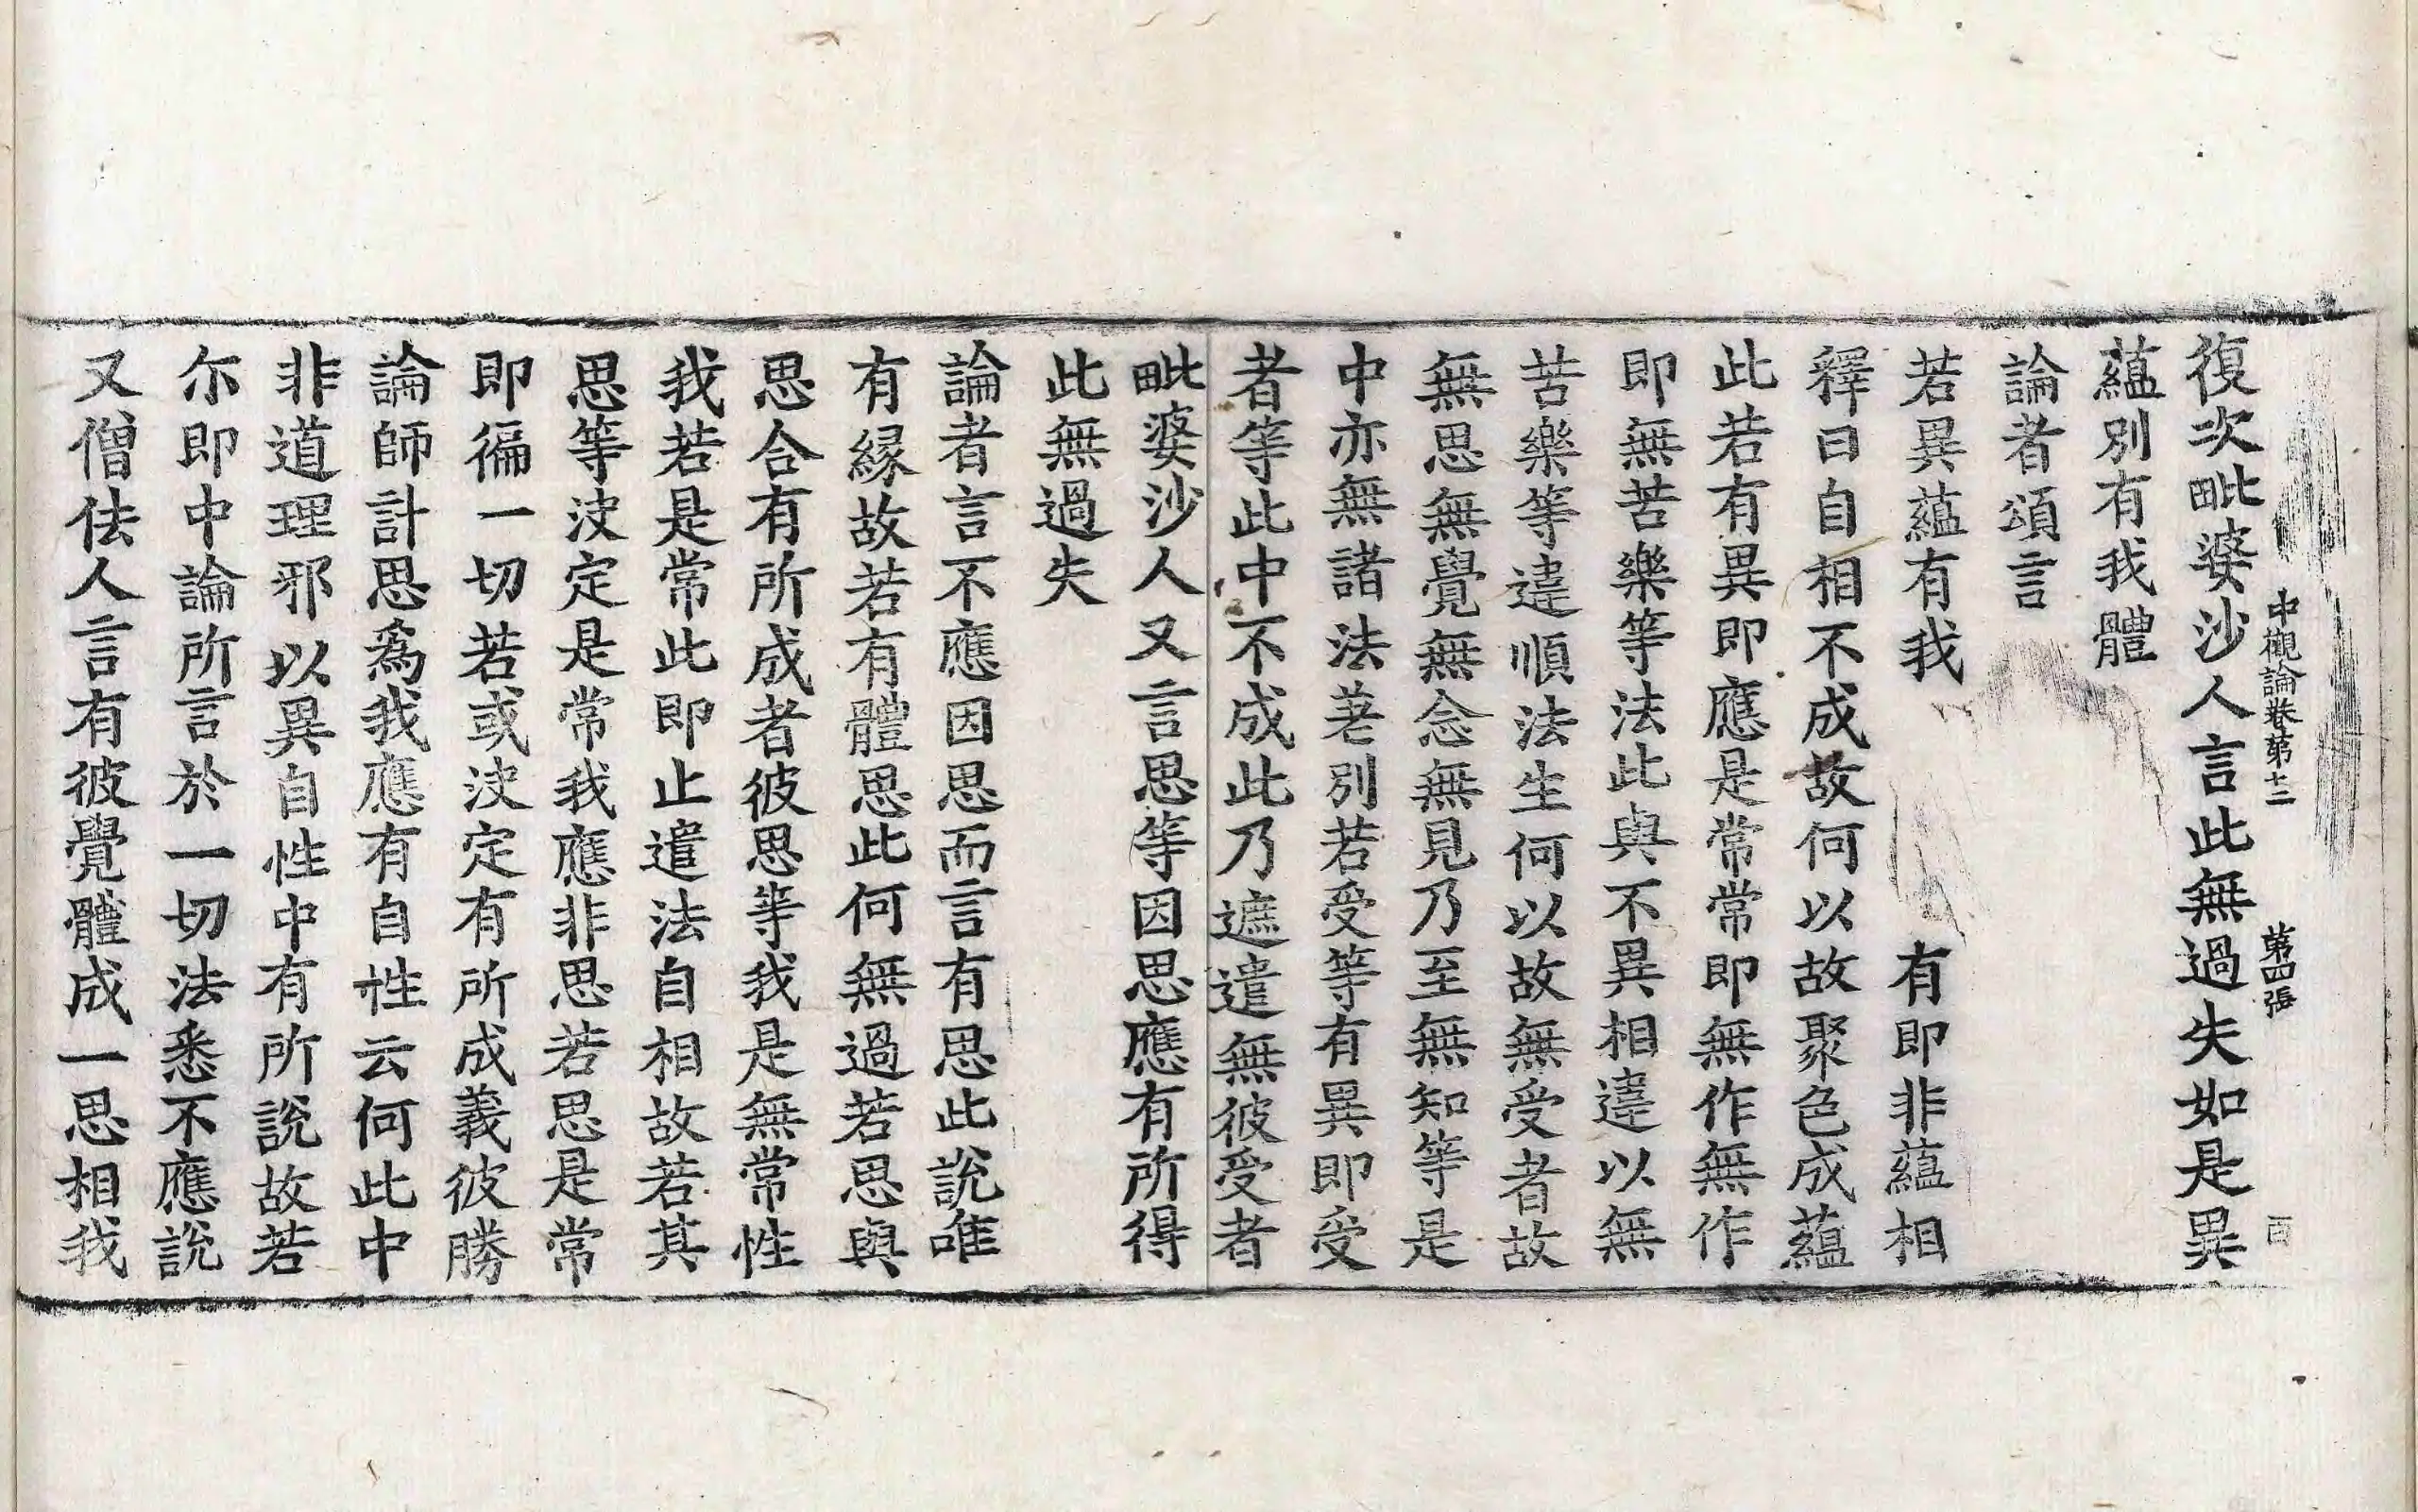 復次毗婆沙人言此無過失如是異
中觀論卷第十二　第四張　百
蘊別有我體
論者頌言
若異蘊有我　有即非蘊相
釋曰自相不成故何以故聚色成蘊
此若有異即應是常常即無作無作
即無苦樂等法此與不異相違以無
苦樂等違順法生何以故無受者故
無思無覺無念無見乃至無知等是
中亦無諸法差別若受等有異即受
者等此中不成此乃遮遣無彼受者
毗婆沙人又言思等因思應有所得
此無過失
論者言不應因思而言有思此說唯
有緣故若有體思此何無過若思與
思合有所成者彼思等我是無常性
我若是常此即止遣法自相故若其
思等決定是常我應非思若思是常
即徧一切若或決定有所成義彼勝
論師計思為我應有自性云何此中
非道理邪以異自性中有所說故若
尒即中論所言於一切法悉不應說
又僧佉人言有彼覺體成一思相我